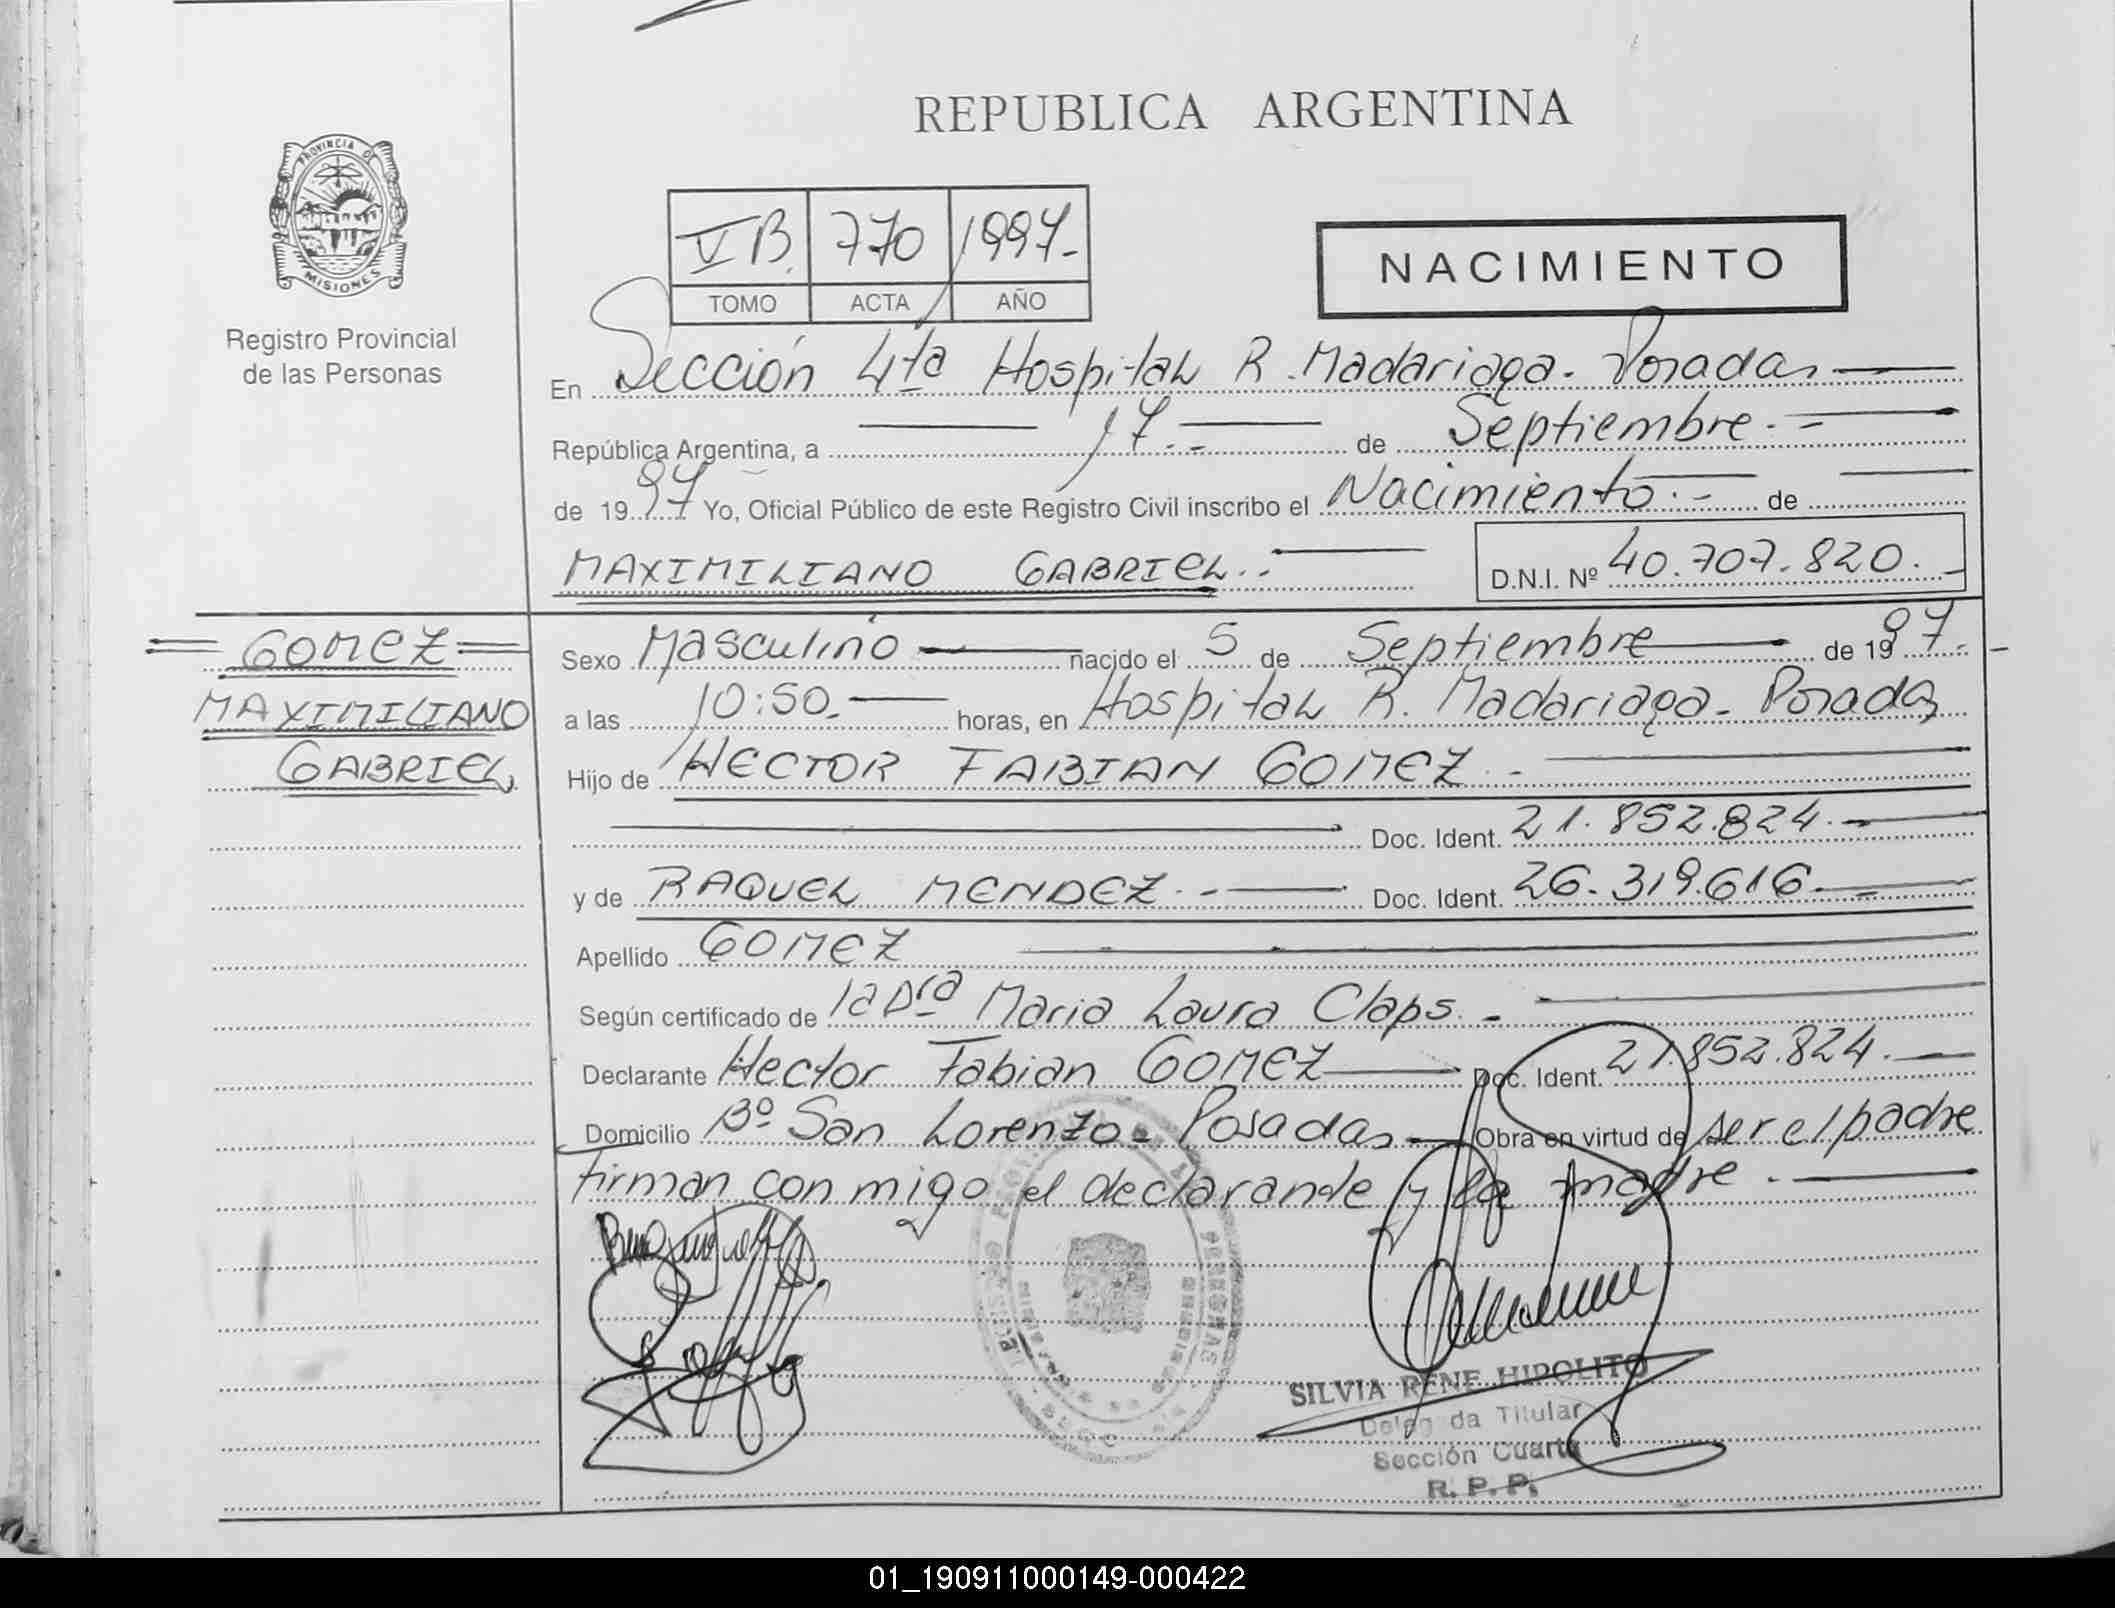 REPUBLICA ARGENTINA
PROVINCIA DE
MISIONES
Registro Provincial
de las Personas
VB. 770 1997.-
TOMO ACTA AÑO
NACIMIENTO
En Sección 4ta Hospital R. Madariaga. Posadas
República Argentina, a 17.- de Septiembre.-
de 1997 Yo, Oficial Público de este Registro Civil inscribo el Nacimiento.- de
MAXIMILIANO GABRIEL.- D.N.I. Nº 40.707.820.-
GOMEZ
MAXIMILIANO
GABRIEL
Sexo Masculino nacido el 5 de Septiembre de 1997.-
a las 10:50.- horas, en Hospital R. Madariaga. Posadas
Hijo de HECTOR FABIAN GOMEZ.-
Doc. Ident. 21.852.824.-
y de RAQUEL MENDEZ.- Doc. Ident. 26.319.616.-
Apellido GOMEZ
Según certificado de la Dra Maria Laura Claps.-
Declarante Hector Fabian GOMEZ Doc. Ident. 21.852.824.-
Domicilio Bº San Lorenzo - Posadas Obra en virtud de ser el padre
firman con migo el declarande y la madre.-
SILVIA RENE HIPOLITO
Deleg da Titular
Sección Cuarta
R. P. P.
01_190911000149-000422